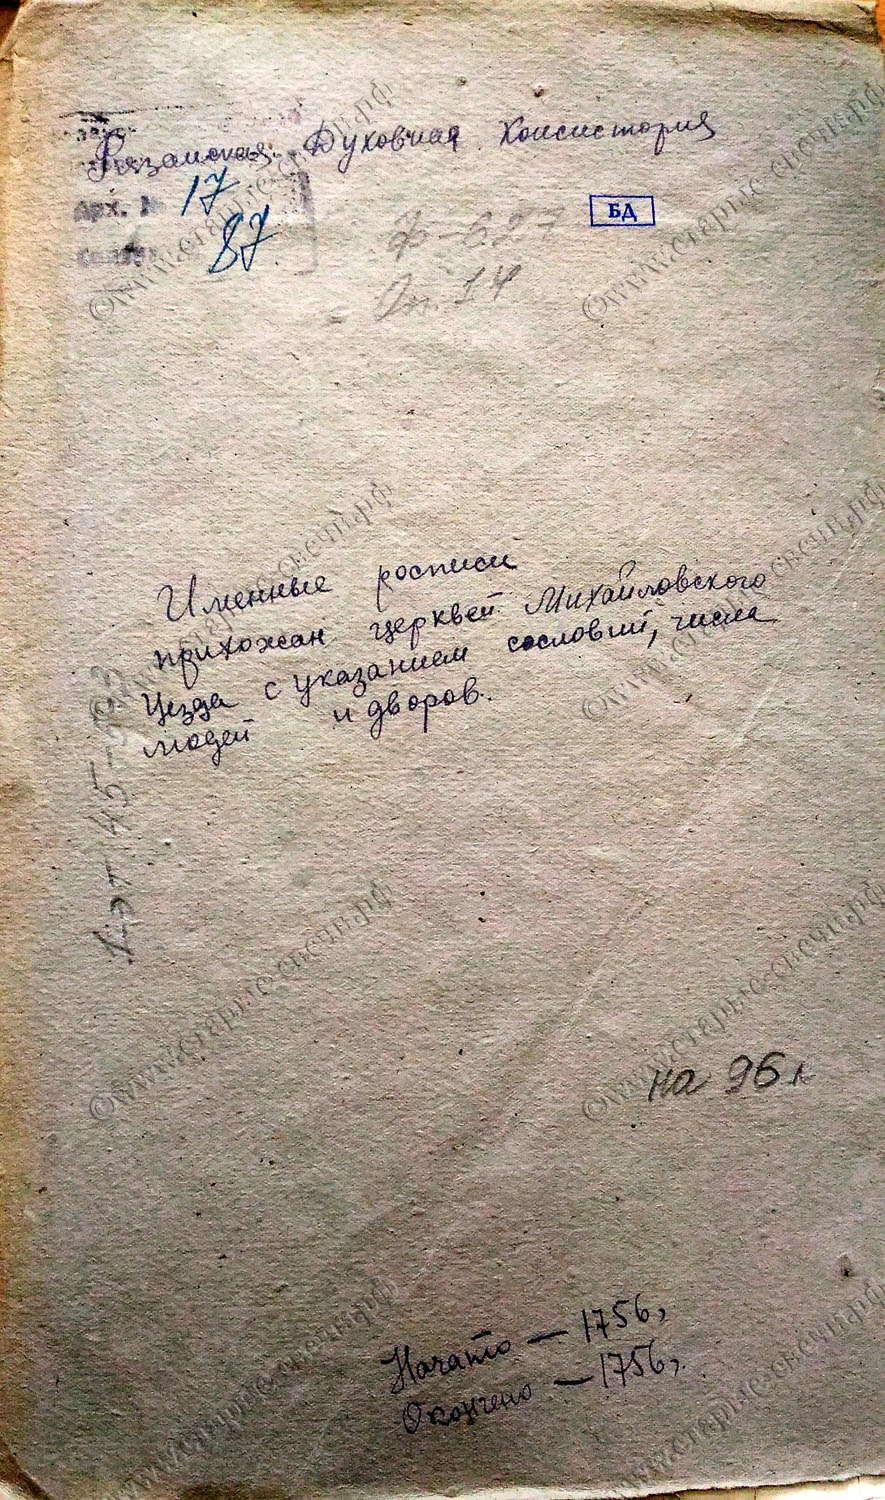 Рязанская Духовная Консистория
Арх. № 17
87.
БД
ф-627
Оп. 14
Именные росписи
прихожан церквей Михайловского
Уезда с указанием сословий, числа
людей и дворов.
на 96 л
Начато — 1756,
Окончено — 1756,
©www.старые-свечи.рф